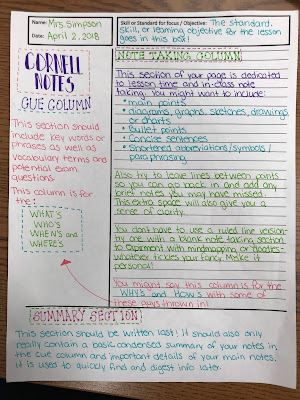 Name: Mrs. Simpson
Date: April 2, 2018
Skill or Standard for focus / Objective: The standard,
skill, or learning objective for the lesson
goes in this box!
CORNELL
NOTES
CUE COLUMN
This section should
include key words or
phrases as well as
vocabulary terms and
potential exam
questions.
This column is for
the:
WHAT'S
WHO'S
WHEN'S and
WHERE'S
NOTE TAKING COLUMN
This section of your page is dedicated
to lesson time and in-class note
taking. You might want to include:
• main points
• diagrams, graphs, sketches, drawings,
or charts
• bullet points
• Concise sentences
• Shortened abbreviations/symbols/
paraphrasing
Also try to leave lines between points
so you can go back in and add any
brief notes you may have missed.
This extra space will also give you a
sense of clarity.
You don't have to use a ruled line version-
try one with a blank note taking section
to experiment with mindmapping or doodles-
whatever tickles your fancy. Make it
personal!
You might say this column is for the
WHY'S and HOW'S with some of
these guys thrown in!
SUMMARY SECTION
This section should be written last! It should also only
really contain a basic condensed summary of your notes in
the cue column and important details of your main notes.
It is used to quickly find and digest info later.